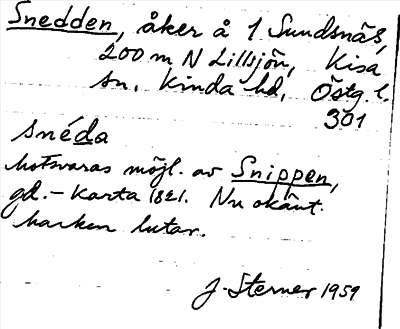 Snedden, åker å 1 Sundsnäs,
200 m N Lillsjön, Kisa
sn. Kinda hd, Östg. l.
301
snéda
motsvaras möjl. av Snippen,
gd. - Karta 1821. Nu okänt.
marken lutar.
J. Sterner 1959